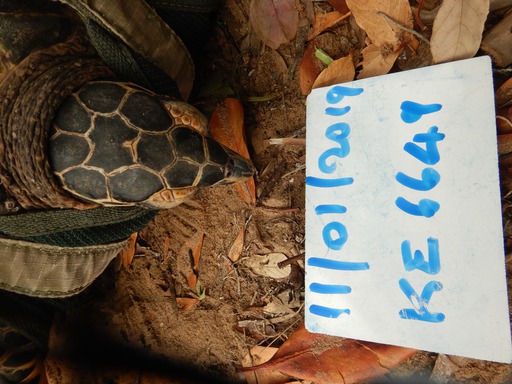 11/01/2019
KE 6649